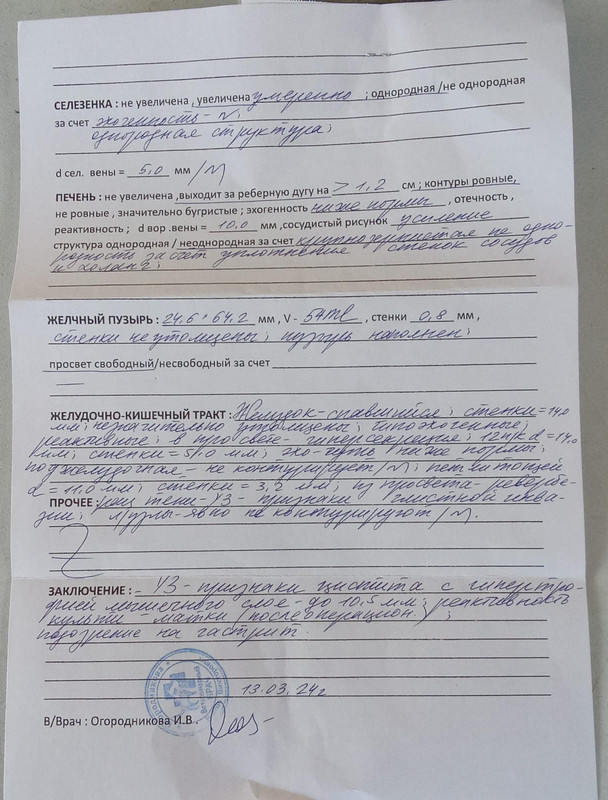 СЕЛЕЗЕНКА : не увеличена , увеличена умеренно ; однородная /не однородная
за счет эхогенность – N;
однородная структура;
d сел. вены = 5,0 мм /N
ПЕЧЕНЬ : не увеличена ,выходит за реберную дугу на > 1,2 см ; контуры ровные,
не ровные , значительно бугристые ; эхогенность ниже нормы , отечность ,
реактивность ; d вор .вены = 10.0 мм ,сосудистый рисунок усиление
структура однородная / неоднородная за счет крупнозернистая не одно-
родность за счет уплотнение стенок сосудов
и холанг;
ЖЕЛЧНЫЙ ПУЗЫРЬ : 24,6 × 64,2 мм , V - 54ml , стенки 0,8 мм ,
стенки не утолщены; пузырь наполнен;
просвет свободный/несвободный за счет
—
ЖЕЛУДОЧНО-КИШЕЧНЫЙ ТРАКТ : Желудок – спавшийся; стенки = 14,0
мм; незначительно утолщены; гипоэхогенные;
реактивные; в просвете – гиперсекреция; 12п/к d = 14,0
мм; стенки = 5,0 мм; эхо-ить ниже нормы;
поджелудочная – не контурирует /N;
d = 11,0 мм; стенки = 3,5 мм; из просвета – ревербе-
ПРОЧЕЕ : тени – УЗ – признаки глистной инва-
зии; л/узлы – явно не контурируют /N.
ЗАКЛЮЧЕНИЕ : – УЗ – признаки цистита с гипертро-
фией мышечного слоя – до 10,5 мм; реактивность
культи – матки /послеоперацион. /;
подозрение на гастрит.
13.03.24г
В/Врач : Огородникова И.В.